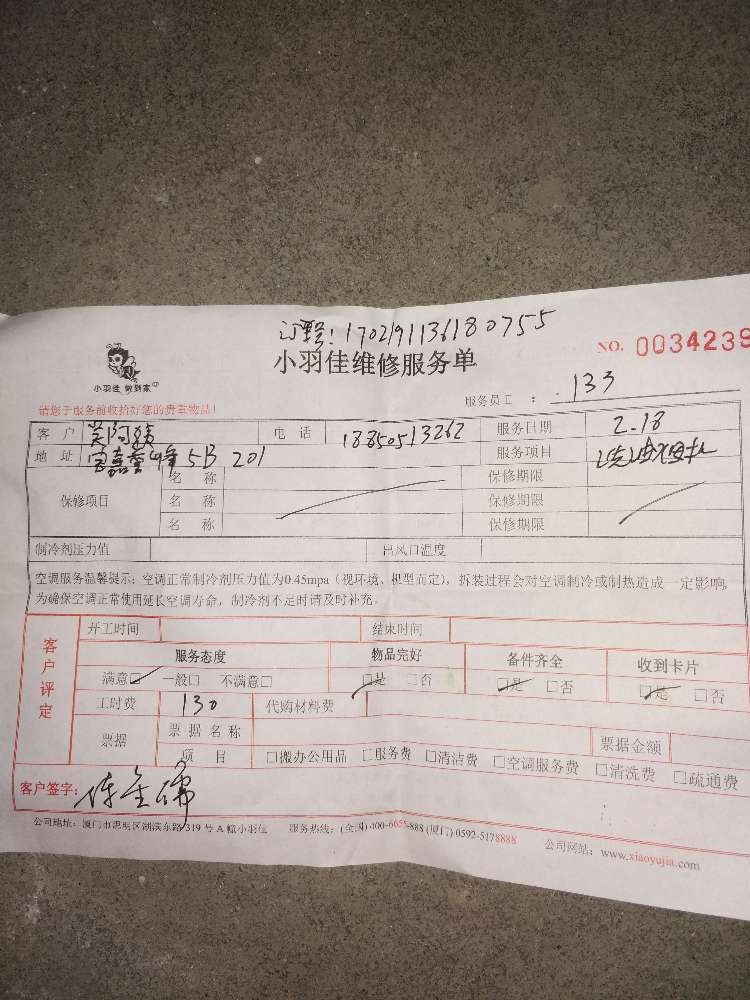 订单号:1702191136180755
小羽佳维修服务单
NO. 0034239
小羽佳 做到家
请您于服务前收拾好您的贵重物品!
服务员工 : 133
客 户 电 话 18850513262 服务日期 2.18
地 址 5B 201 服务项目 洗油烟机
保修项目 名 称 保修期限
名 称 保修期限
名 称 保修期限
制冷剂压力值 出风口温度
空调服务温馨提示:空调正常制冷剂压力值为0.45mpa(视环境、机型而定),拆装过程会对空调制冷或制热造成一定影响,
为确保空调正常使用延长空调寿命,制冷剂不足时请及时补充。
客户评定
开工时间 结束时间
服务态度 物品完好 备件齐全 收到卡片
满意□ 一般□ 不满意□ □是 □否 □是 □否 □是 □否
工时费 130 代购材料费
票据 票据名称 票据金额
项 目 □搬办公用品 □服务费 □清洁费 □空调服务费 □清洗费 □疏通费
客户签字:
公司地址:厦门市思明区湖滨东路319号A幢小羽佳 服务热线:(全国)400-6655-888 (厦门)0592-5178888 公司网站:www.xiaoyujia.com